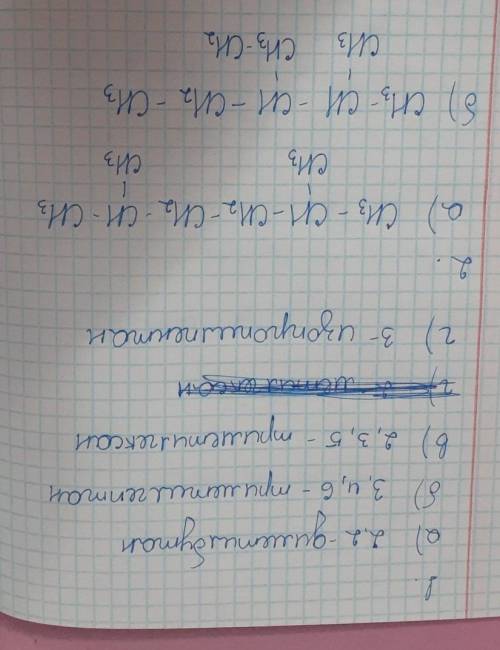 1.
а) 2,2-диметилбутан
б) 3,4,6 - триметилгептан
в) 2,3,5 - триметилгексан
г) 3-изопропилпентан
2.
а) CH₃ - CH - CH₂ - CH₂ - CH - CH₃
CH₃ CH₃
б) CH₃ - CH - CH - CH₂ - CH₃
CH₃ CH₃-CH₂